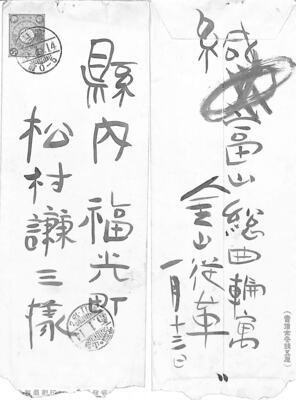 縣内 福光町
松村謙三様
緘
富山総曲輪寓
金山従革
一月十三日